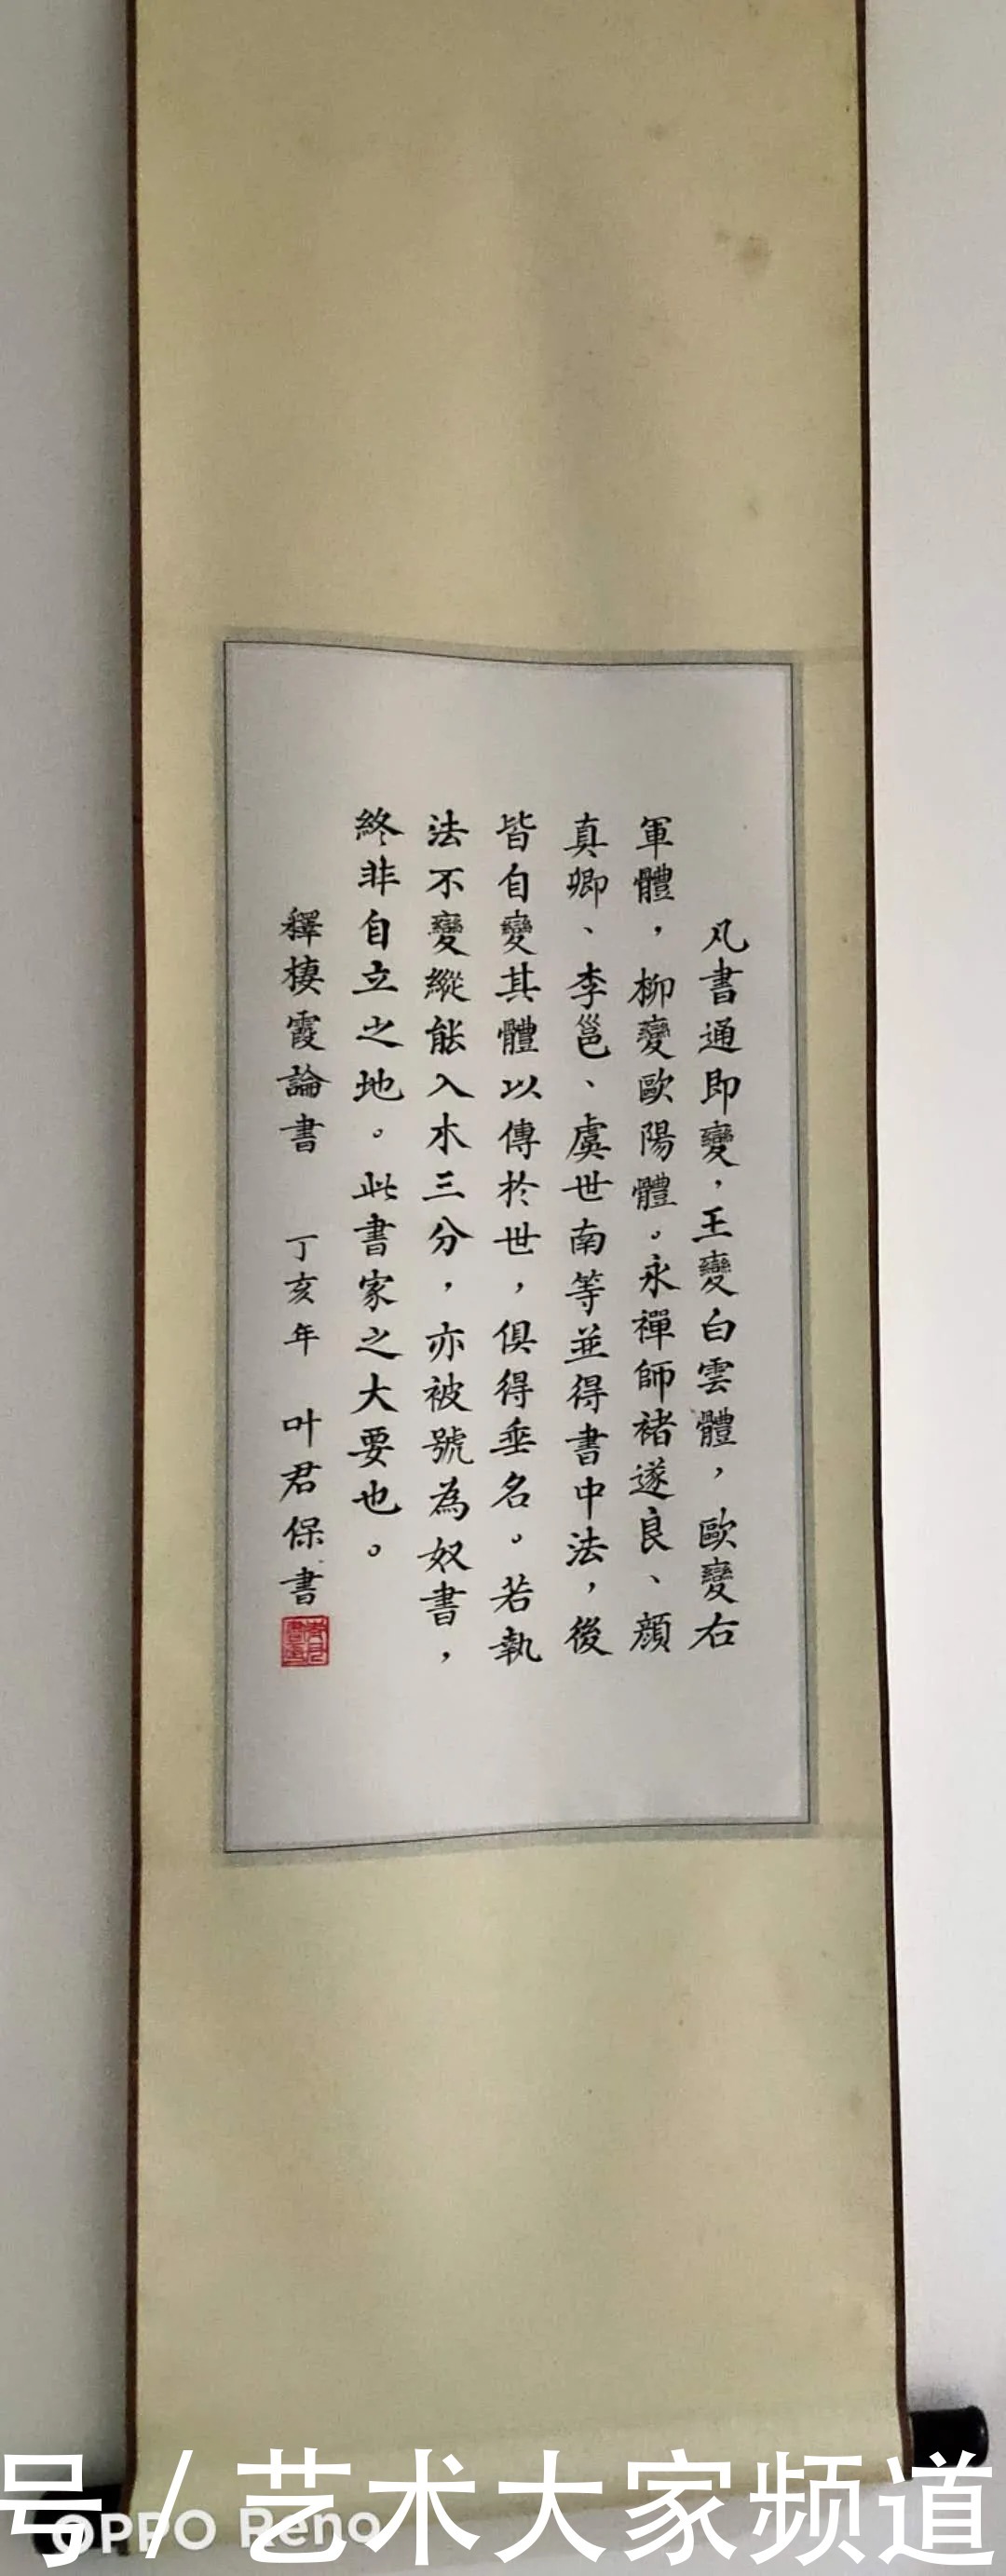 凡書通即變，王變白雲體，歐變右
軍體，柳變歐陽體。永禪師褚遂良、顏
真卿、李邕、虞世南等並得書中法，後
皆自變其體以傳於世，俱得垂名。若執
法不變縱能入木三分，亦被號為奴書，
終非自立之地。此書家之大要也。
釋棲霞論書 丁亥年 叶君保書
号/艺术大家频道
OPPO Reno